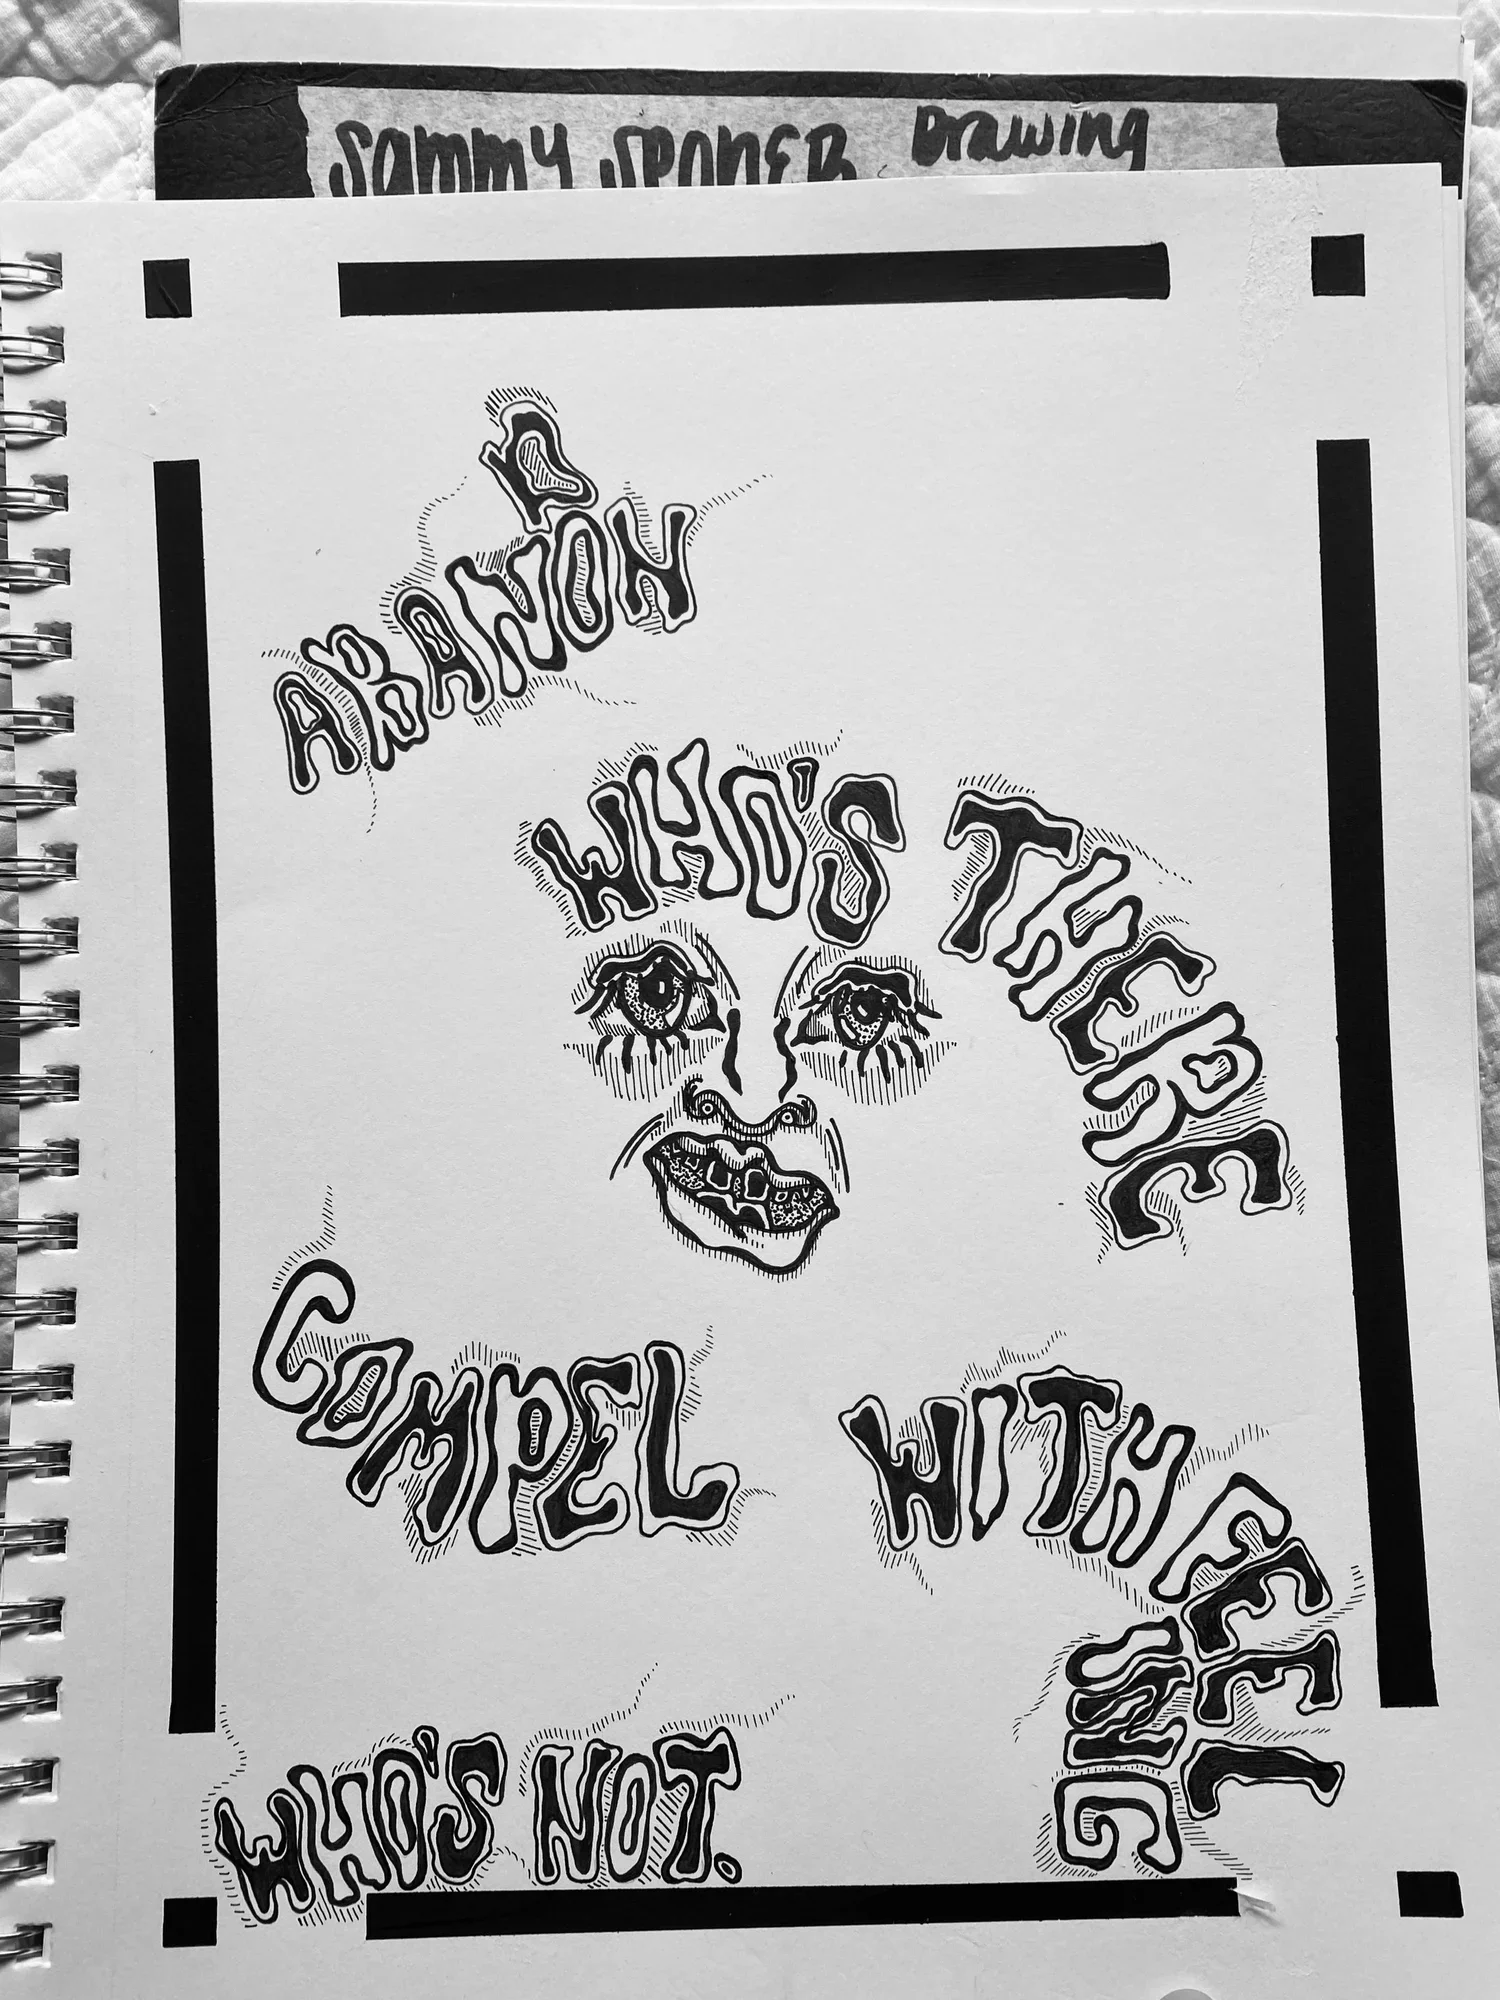 Sammy SPONER Drawing
ABANDON
WHO'S THERE
COMPEL
WITH FEELING
WHO'S NOT.